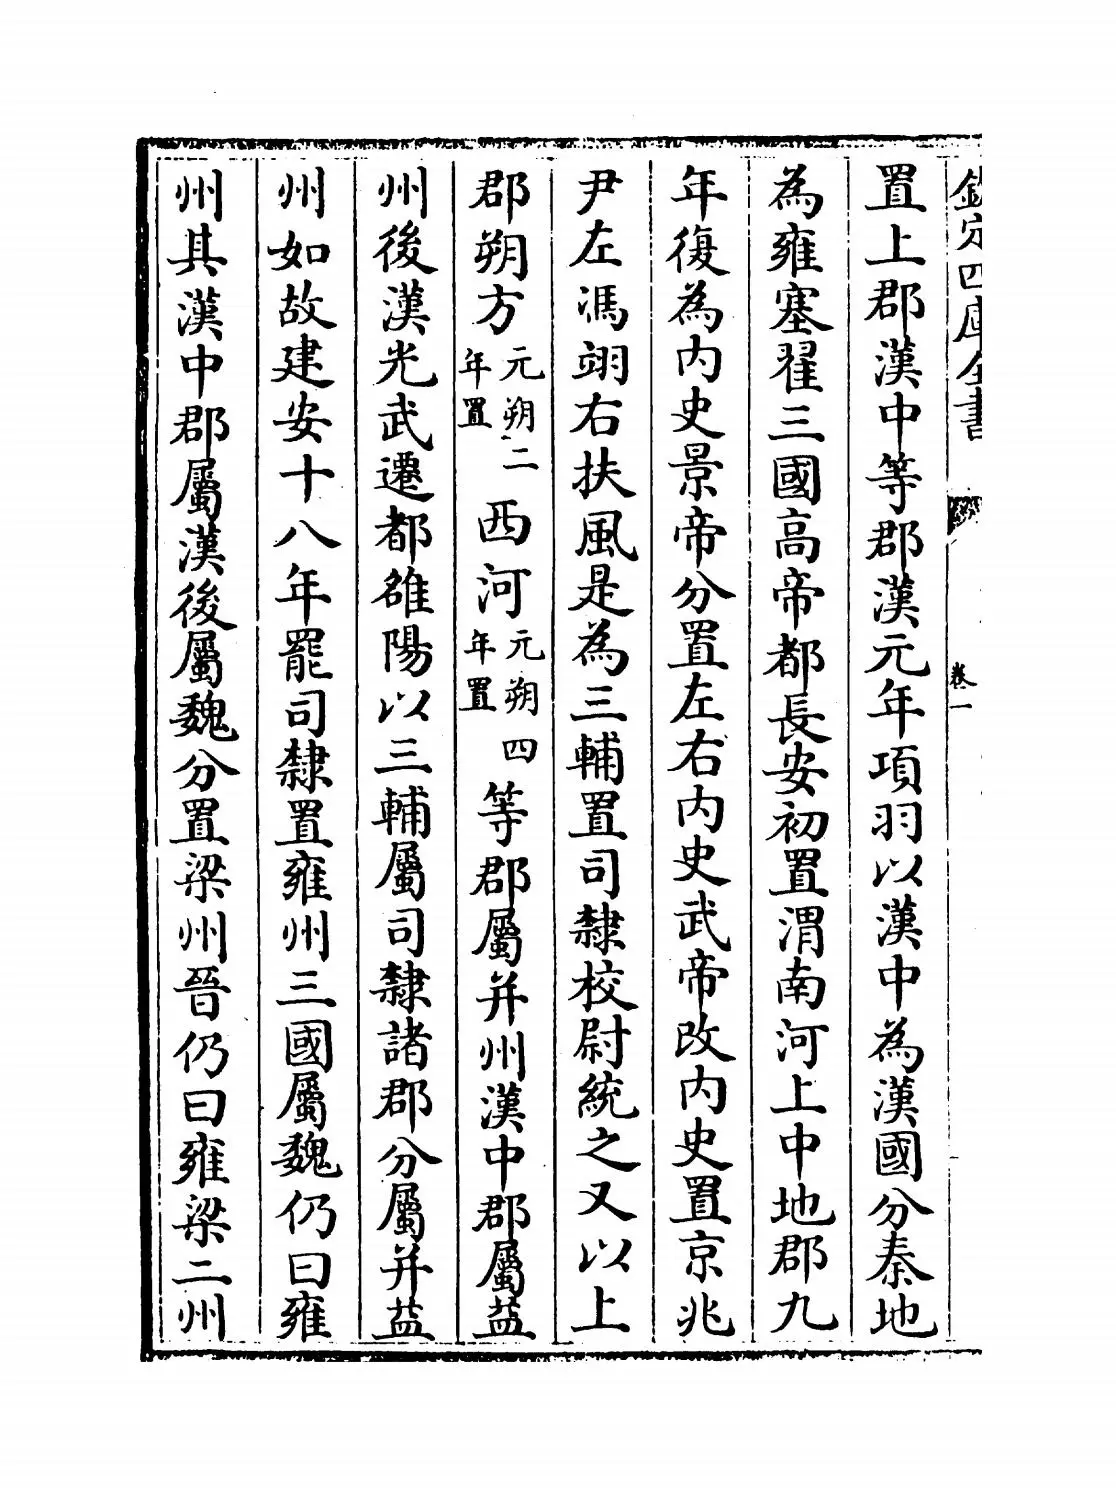 欽定四庫全書
卷一
置上郡漢中等郡漢元年項羽以漢中為漢國分秦地
為雍塞翟三國高帝都長安初置渭南河上中地郡九
年復為内史景帝分置左右内史武帝改内史置京兆
尹左馮翊右扶風是為三輔置司隸校尉統之又以上
郡朔方元朔二年置西河元朔四年置等郡屬并州漢中郡屬益
州後漢光武遷都雒陽以三輔屬司隸諸郡分屬并益
州如故建安十八年罷司隸置雍州三國屬魏仍曰雍
州其漢中郡屬漢後屬魏分置梁州晉仍曰雍梁二州